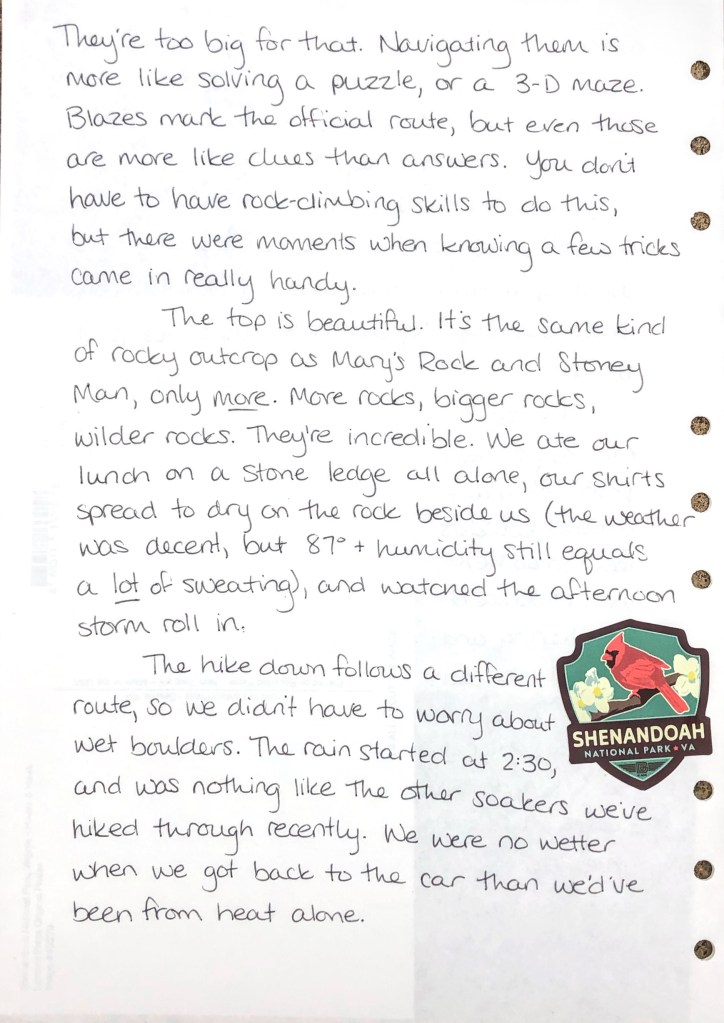 They're too big for that. Navigating them is
more like solving a puzzle, or a 3-D maze.
Blazes mark the official route, but even those
are more like clues than answers. You don't
have to have rock-climbing skills to do this,
but there were moments when knowing a few tricks
came in really handy.
The top is beautiful. It's the same kind
of rocky outcrop as Mary's Rock and Stoney
Man, only more. More rocks, bigger rocks,
wilder rocks. They're incredible. We ate our
lunch on a stone ledge all alone, our shirts
spread to dry on the rock beside us (the weather
was decent, but 87° + humidity still equals
a lot of sweating), and watched the afternoon
storm roll in.
The hike down follows a different
route, so we didn't have to worry about
wet boulders. The rain started at 2:30,
and was nothing like the other soakers we've
hiked through recently. We were no wetter
when we got back to the car than we'd've
been from heat alone.
SHENANDOAH
NATIONAL PARK • VA